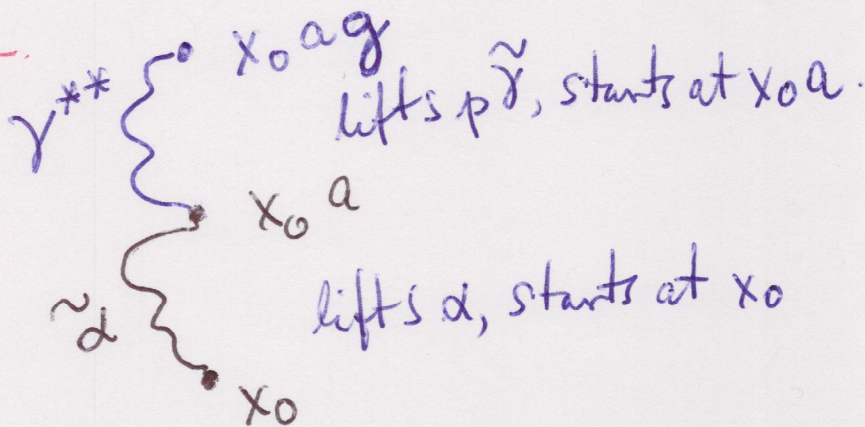 x₀ a g
γ**
lifts pγ̃, starts at x₀a.
x₀ a
α̃
lifts α, starts at x₀
x₀